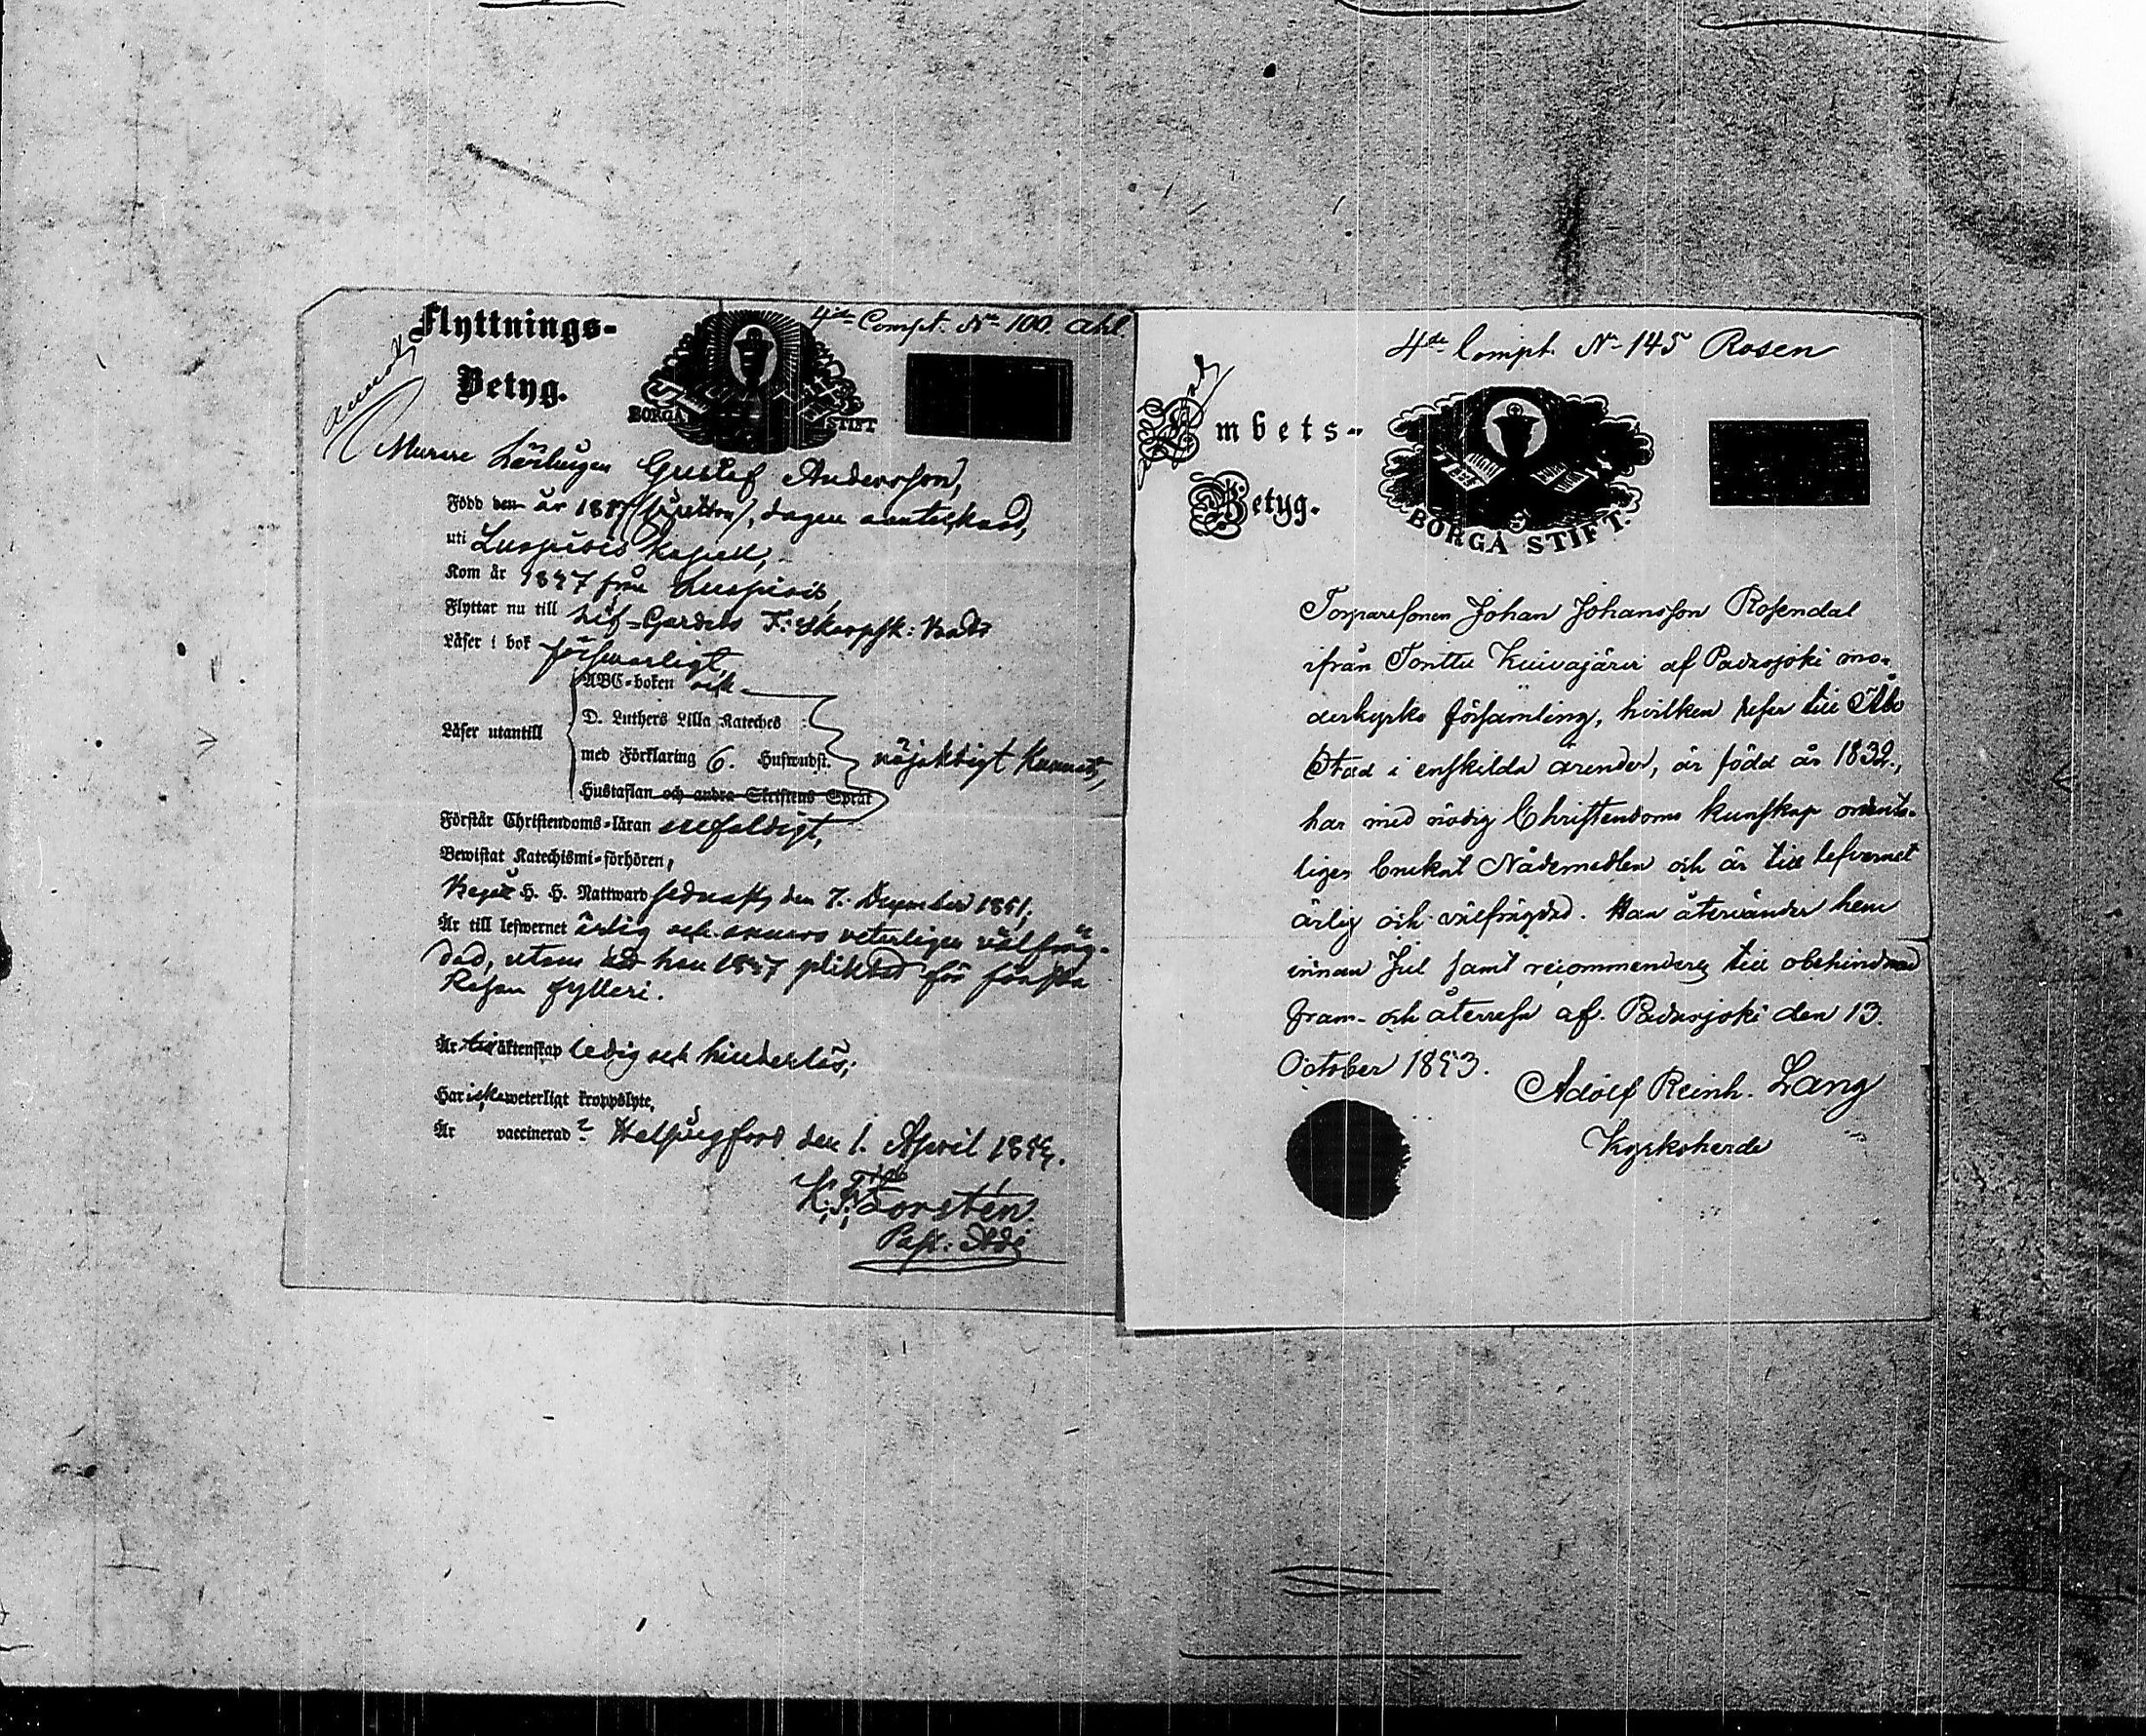 Flyttnings-
Betyg.
BORGÅ STIFT
4de Compt. No 100. Ahl.
Murare Lärlingen Gustaf Andersson,
Född den år dagen antecknad,
uti Kapell,
Kom år från
Flyttar nu till Lif-Gardets F: Skarpsk: Bat:
Läser i bok försvarligt,
ABC-boken
Läser utantill
D. Luthers Lilla Kateches
med Förklaring 6. Hufwudst.
nöjaktigt
Hustaflan och andra Skriftens Språk
Förstår Christendoms-läran enfaldigt,
Bewistat Katechismi-förhören,
Begått H. H. Nattward sednast den 7. December
Är till lefwernet ärlig och annars veterligen välfräg-
dad, utom att han pliktat för första
Resan fylleri.
Är till äktenskap ledig och hinderlös,
Har icke weterligt kroppslyte,
Är vaccinerad? Helsingfors den 1. April
Past: Adj
4de Compt. No 145 Rosen
Embets-
Betyg.
BORGÅ STIFT.
Torparesonen Johan Johansson Rosendal
ifrån Tonttu Kuivajärvi af Padasjoki mo-
derkyrko församling, hvilken reser till Åbo
Stad i enskilda ärender, är född år 1832.,
har med nödig Christendoms kunskap ordent-
ligen brukat Nådemedlen och är till lefvernet
ärlig och välfrägdad. Han återvänder hem
innan Jul samt recommenderas till obehindrad
fram- och återresa af. Padasjoki den 13.
October 1853.
Adolf Reinh. Lang
Kyrkoherde